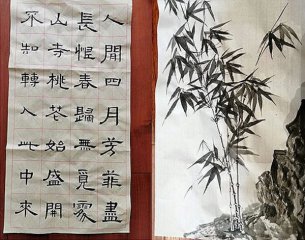 人間四月芳菲盡
長恨春歸無覓處
山寺桃花始盛開
不知轉入此中來